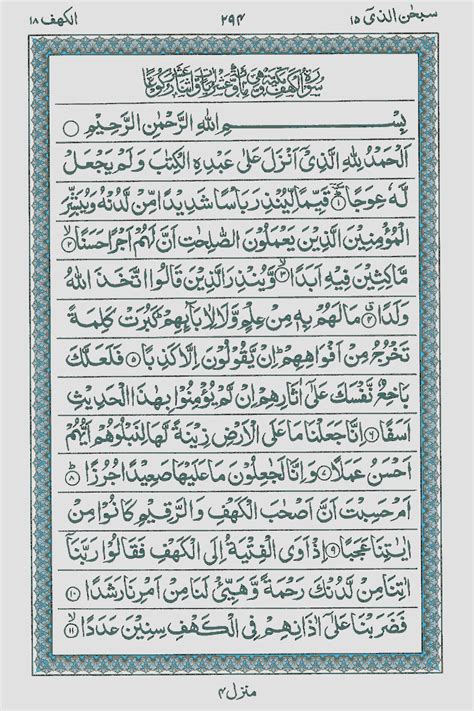 سبحٰن الذیٓ ۱۵ ۲۹۴ الکھف ۱۸
بِسْمِ اللهِ الرَّحْمٰنِ الرَّحِيْمِ
اَلْحَمْدُ لِلّٰهِ الَّذِيْٓ اَنْزَلَ عَلٰى عَبْدِهِ الْكِتٰبَ وَلَمْ يَجْعَلْ
لَّهٗ عِوَجًا ۱ قَيِّمًا لِّيُنْذِرَ بَاْسًا شَدِيْدًا مِّنْ لَّدُنْهُ وَيُبَشِّرَ
الْمُؤْمِنِيْنَ الَّذِيْنَ يَعْمَلُوْنَ الصّٰلِحٰتِ اَنَّ لَهُمْ اَجْرًا حَسَنًا ۲
مَّاكِثِيْنَ فِيْهِ اَبَدًا ۳ وَّيُنْذِرَ الَّذِيْنَ قَالُوا اتَّخَذَ اللهُ
وَلَدًا ۴ مَا لَهُمْ بِهٖ مِنْ عِلْمٍ وَّلَا لِاٰبَآئِهِمْ كَبُرَتْ كَلِمَةً
تَخْرُجُ مِنْ اَفْوَاهِهِمْ اِنْ يَّقُوْلُوْنَ اِلَّا كَذِبًا ۵ فَلَعَلَّكَ
بَاخِعٌ نَّفْسَكَ عَلٰٓى اٰثَارِهِمْ اِنْ لَّمْ يُؤْمِنُوْا بِهٰذَا الْحَدِيْثِ
اَسَفًا ۶ اِنَّا جَعَلْنَا مَا عَلَى الْاَرْضِ زِيْنَةً لَّهَا لِنَبْلُوَهُمْ اَيُّهُمْ
اَحْسَنُ عَمَلًا ۷ وَاِنَّا لَجٰعِلُوْنَ مَا عَلَيْهَا صَعِيْدًا جُرُزًا ۸
اَمْ حَسِبْتَ اَنَّ اَصْحٰبَ الْكَهْفِ وَالرَّقِيْمِ كَانُوْا مِنْ
اٰيٰتِنَا عَجَبًا ۹ اِذْ اَوَى الْفِتْيَةُ اِلَى الْكَهْفِ فَقَالُوْا رَبَّنَآ
اٰتِنَا مِنْ لَّدُنْكَ رَحْمَةً وَّهَيِّئْ لَنَا مِنْ اَمْرِنَا رَشَدًا ۱۰
فَضَرَبْنَا عَلٰٓى اٰذَانِهِمْ فِى الْكَهْفِ سِنِيْنَ عَدَدًا ۱۱
منزل ۴